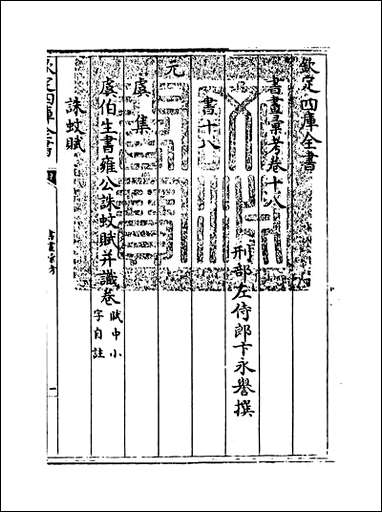 欽定四庫全書
書畫彙考卷十八
刑部左侍郎卞永譽撰
書十八
元
虞集
虞伯生書雍公誅蚊賦并識卷賦中小字自註
誅蚊賦
欽定四庫全書
書畫彙考
一